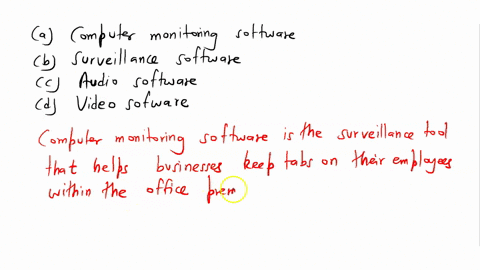 (a) Computer monitoring software
(b) Surveillance software
(c) Audio software
(d) Video sofware
Computer monitoring software is the surveillance tool
that helps businesses keep tabs on their employees
within the office prem